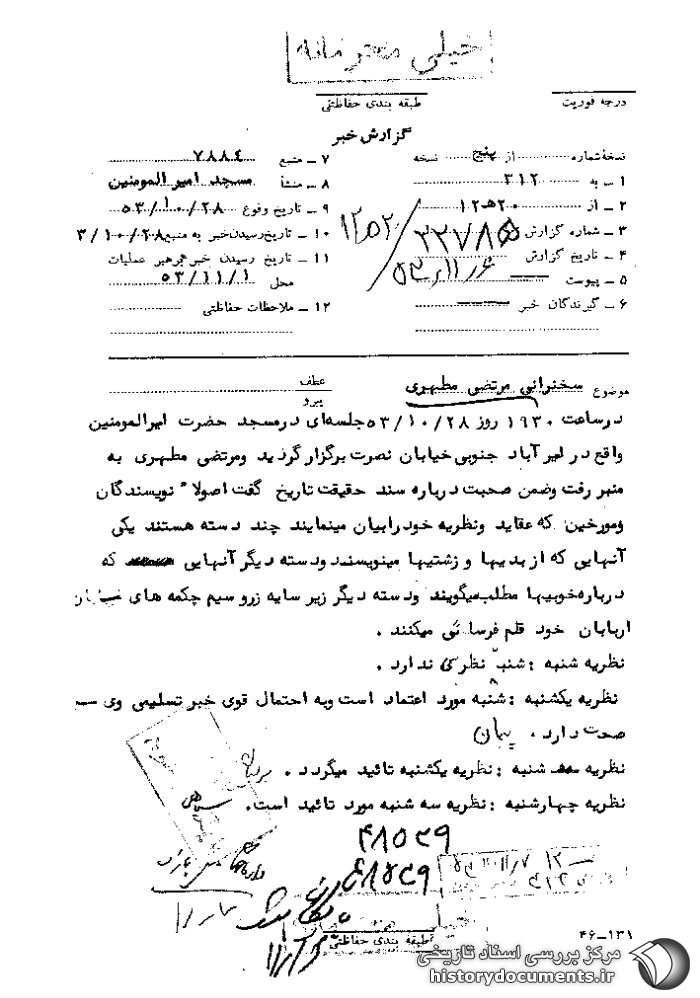 خیلی محرمانه
درجه فوریت
طبقه بندی حفاظتی
گزارش خبر
نسخه شماره از پنج نسخه
۱ ـ به ۳۱۲
۲ ـ از ۲۰ ه‍ ۱۲
۳ ـ شماره گزارش ۲۲۷۸۵
۴ ـ تاریخ گزارش
۵ ـ پیوست
۶ ـ گیرندگان خبر
۷ ـ منبع ۷۸۸۴
۸ ـ منشأ مسجد امیر المومنین
۹ ـ تاریخ وقوع ۵۳/۱۰/۲۸
۱۰ ـ تاریخ رسیدن خبر به منبع ۳/۱۰/۲۸
۱۱ ـ تاریخ رسیدن خبر بر هبر عملیات
محل ۵۳/۱۱/۱
۱۲ ـ ملاحظات حفاظتی
موضوع سخنرانی مرتضی مطهری
عطف
پیرو
در ساعت ۱۹۳۰ روز ۵۳/۱۰/۲۸ جلسه‌ای در مسجد حضرت امیرالمومنین
واقع در امیر آباد جنوبی خیابان نصرت برگزار گردید ومرتضی مطهری به
منبر رفت وضمن صحبت درباره سند حقیقت تاریخ گفت اصولا" نویسندگان
ومورخین که عقاید ونظریه خود را بیان مینمایند چند دسته هستند یکی
آنهایی که از بدیها و زشتیها مینویسند ودسته دیگر آنهایی که
درباره خوبیها مطلب میگویند ودسته دیگر زیر سایه زر و سیم چکمه های
اربابان خود قلم فرسائی میکنند .
نظریه شنبه : شنبه نظری ندارد .
نظریه یکشنبه : شنبه مورد اعتماد است وبه احتمال قوی خبر تسلیمی وی
صحت دارد . پیمان
نظریه سه شنبه : نظریه یکشنبه تائید میگردد .
نظریه چهارشنبه : نظریه سه شنبه مورد تائید است .
طبقه بندی حفاظتی
۴۶ـ۱۳۱
مرکز بررسی اسناد تاریخی
historydocuments.ir